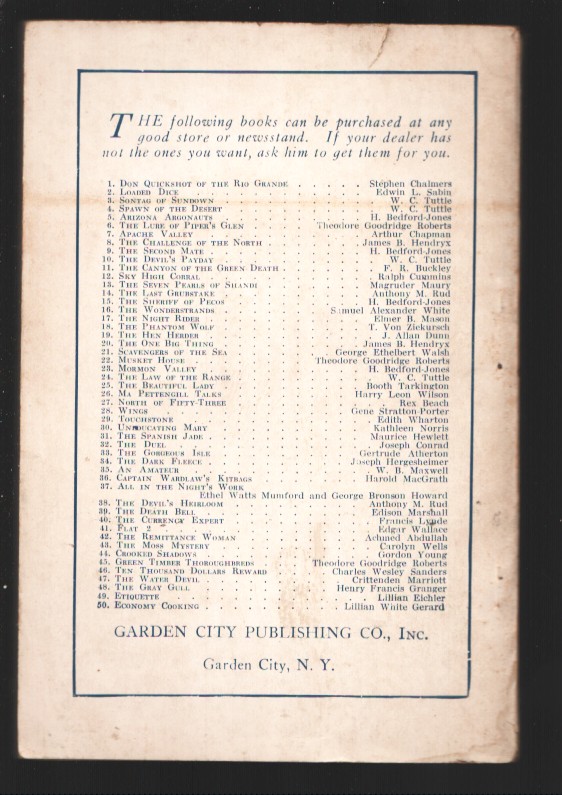 THE following books can be purchased at any
good store or newsstand. If your dealer has
not the ones you want, ask him to get them for you.
1. Don Quickshot of the Rio Grande . . . . . Stephen Chalmers
2. Loaded Dice . . . . . Edwin L. Sabin
3. Sontag of Sundown . . . . . W. C. Tuttle
4. Spawn of the Desert . . . . . W. C. Tuttle
5. Arizona Argonauts . . . . . H. Bedford-Jones
6. The Lure of Piper's Glen . . . . . Theodore Goodridge Roberts
7. Apache Valley . . . . . Arthur Chapman
8. The Challenge of the North . . . . . James B. Hendryx
9. The Second Mate . . . . . H. Bedford-Jones
10. The Devil's Payday . . . . . W. C. Tuttle
11. The Canyon of the Green Death . . . . . F. R. Buckley
12. Sky High Corral . . . . . Ralph Cummins
13. The Seven Pearls of Shandi . . . . . Magruder Maury
14. The Last Grubstake . . . . . Anthony M. Rud
15. The Sheriff of Pecos . . . . . H. Bedford-Jones
16. The Wonderstrands . . . . . Samuel Alexander White
17. The Night Rider . . . . . Elmer B. Mason
18. The Phantom Wolf . . . . . T. Von Ziekursch
19. The Hen Herder . . . . . J. Allan Dunn
20. The One Big Thing . . . . . James B. Hendryx
21. Scavengers of the Sea . . . . . George Ethelbert Walsh
22. Musket House . . . . . Theodore Goodridge Roberts
23. Mormon Valley . . . . . H. Bedford-Jones
24. The Law of the Range . . . . . W. C. Tuttle
25. The Beautiful Lady . . . . . Booth Tarkington
26. Ma Pettengill Talks . . . . . Harry Leon Wilson
27. North of Fifty-Three . . . . . Rex Beach
28. Wings . . . . . Gene Stratton-Porter
29. Touchstone . . . . . Edith Wharton
30. Uneducating Mary . . . . . Kathleen Norris
31. The Spanish Jade . . . . . Maurice Hewlett
32. The Duel . . . . . Joseph Conrad
33. The Gorgeous Isle . . . . . Gertrude Atherton
34. The Dark Fleece . . . . . Joseph Hergesheimer
35. An Amateur . . . . . W. B. Maxwell
36. Captain Wardlaw's Kitbags . . . . . Harold MacGrath
37. All in the Night's Work
Ethel Watts Mumford and George Bronson Howard
38. The Devil's Heirloom . . . . . Anthony M. Rud
39. The Death Bell . . . . . Edison Marshall
40. The Currency Expert . . . . . Francis Lynde
41. Flat 2 . . . . . Edgar Wallace
42. The Remittance Woman . . . . . Achmed Abdullah
43. The Moss Mystery . . . . . Carolyn Wells
44. Crooked Shadows . . . . . Gordon Young
45. Green Timber Thoroughbreds . . . . . Theodore Goodridge Roberts
46. Ten Thousand Dollars Reward . . . . . Charles Wesley Sanders
47. The Water Devil . . . . . Crittenden Marriott
48. The Gray Gull . . . . . Henry Francis Granger
49. Etiquette . . . . . Lillian Eichler
50. Economy Cooking . . . . . Lillian White Gerard
GARDEN CITY PUBLISHING CO., Inc.
Garden City, N. Y.